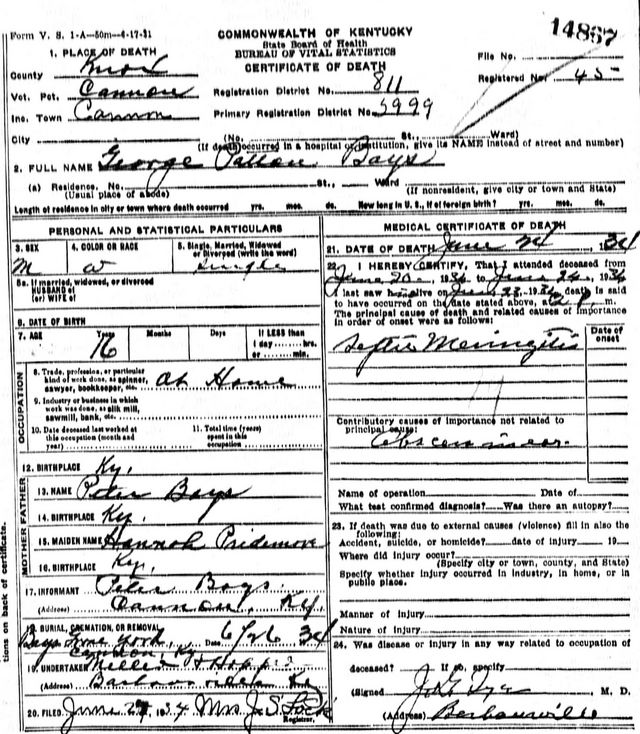 Form V. S. 1-A—50m—4-17-31
COMMONWEALTH OF KENTUCKY
State Board of Health
BUREAU OF VITAL STATISTICS
CERTIFICATE OF DEATH
14867
1. PLACE OF DEATH
County Knox
Vot. Pct. Cannon
Inc. Town Cannon
City
File No.
Registered No. 45
Registration District No. 811
Primary Registration District No. 5999
(No. St., Ward)
(If death occurred in a hospital or institution, give its NAME instead of street and number)
2. FULL NAME George Bays
(a) Residence. No. St., Ward
(Usual place of abode) (If nonresident, give city or town and State)
Length of residence in city or town where death occurred yrs. mos. ds. How long in U. S., if of foreign birth? yrs. mos. ds.
PERSONAL AND STATISTICAL PARTICULARS
3. SEX 4. COLOR OR RACE 5. Single, Married, Widowed
or Divorced (write the word)
M W Single
5a. If married, widowed, or divorced
HUSBAND of
(or) WIFE of
6. DATE OF BIRTH
7. AGE Years Months Days If LESS than
1 day hrs.
or min.
16
OCCUPATION
8. Trade, profession, or particular
kind of work done, as spinner,
sawyer, bookkeeper, etc. At Home
9. Industry or business in which
work was done, as silk mill,
sawmill, bank, etc.
10. Date deceased last worked at
this occupation (month and
year)
11. Total time (years)
spent in this
occupation
12. BIRTHPLACE Ky.
FATHER
13. NAME Peter Bays
14. BIRTHPLACE Ky.
MOTHER
15. MAIDEN NAME Hannah Pridemore
16. BIRTHPLACE Ky.
17. INFORMANT Peter Bays
(Address) Cannon, Ky.
18. BURIAL, CREMATION, OR REMOVAL
Bays Grave Yard, Date 6/26 34
Cannon, Ky.
19. UNDERTAKER
(Address) Barbourville Ky
20. FILED June 1934 Mrs J. S. Lock
Registrar.
MEDICAL CERTIFICATE OF DEATH
21. DATE OF DEATH June 24 1934
22. I HEREBY CERTIFY, That I attended deceased from
June 20, 1934 to June 24, 1934
I last saw him alive on June 23, 1934 death is said
to have occurred on the date stated above, at 2 P. m.
The principal cause of death and related causes of importance
in order of onset were as follows:
Date of
onset
Septic Meningitis
Contributory causes of importance not related to
principal cause:
Abscess in ear.
Name of operation Date of
What test confirmed diagnosis? Was there an autopsy?
23. If death was due to external causes (violence) fill in also the
following:
Accident, suicide, or homicide? date of injury 19
Where did injury occur?
(Specify city or town, county, and State)
Specify whether injury occurred in industry, in home, or in
public place.
Manner of injury
Nature of injury
24. Was disease or injury in any way related to occupation of
deceased? If so, specify
(Signed) M. D.
(Address) Barbourville
tions on back of certificate.